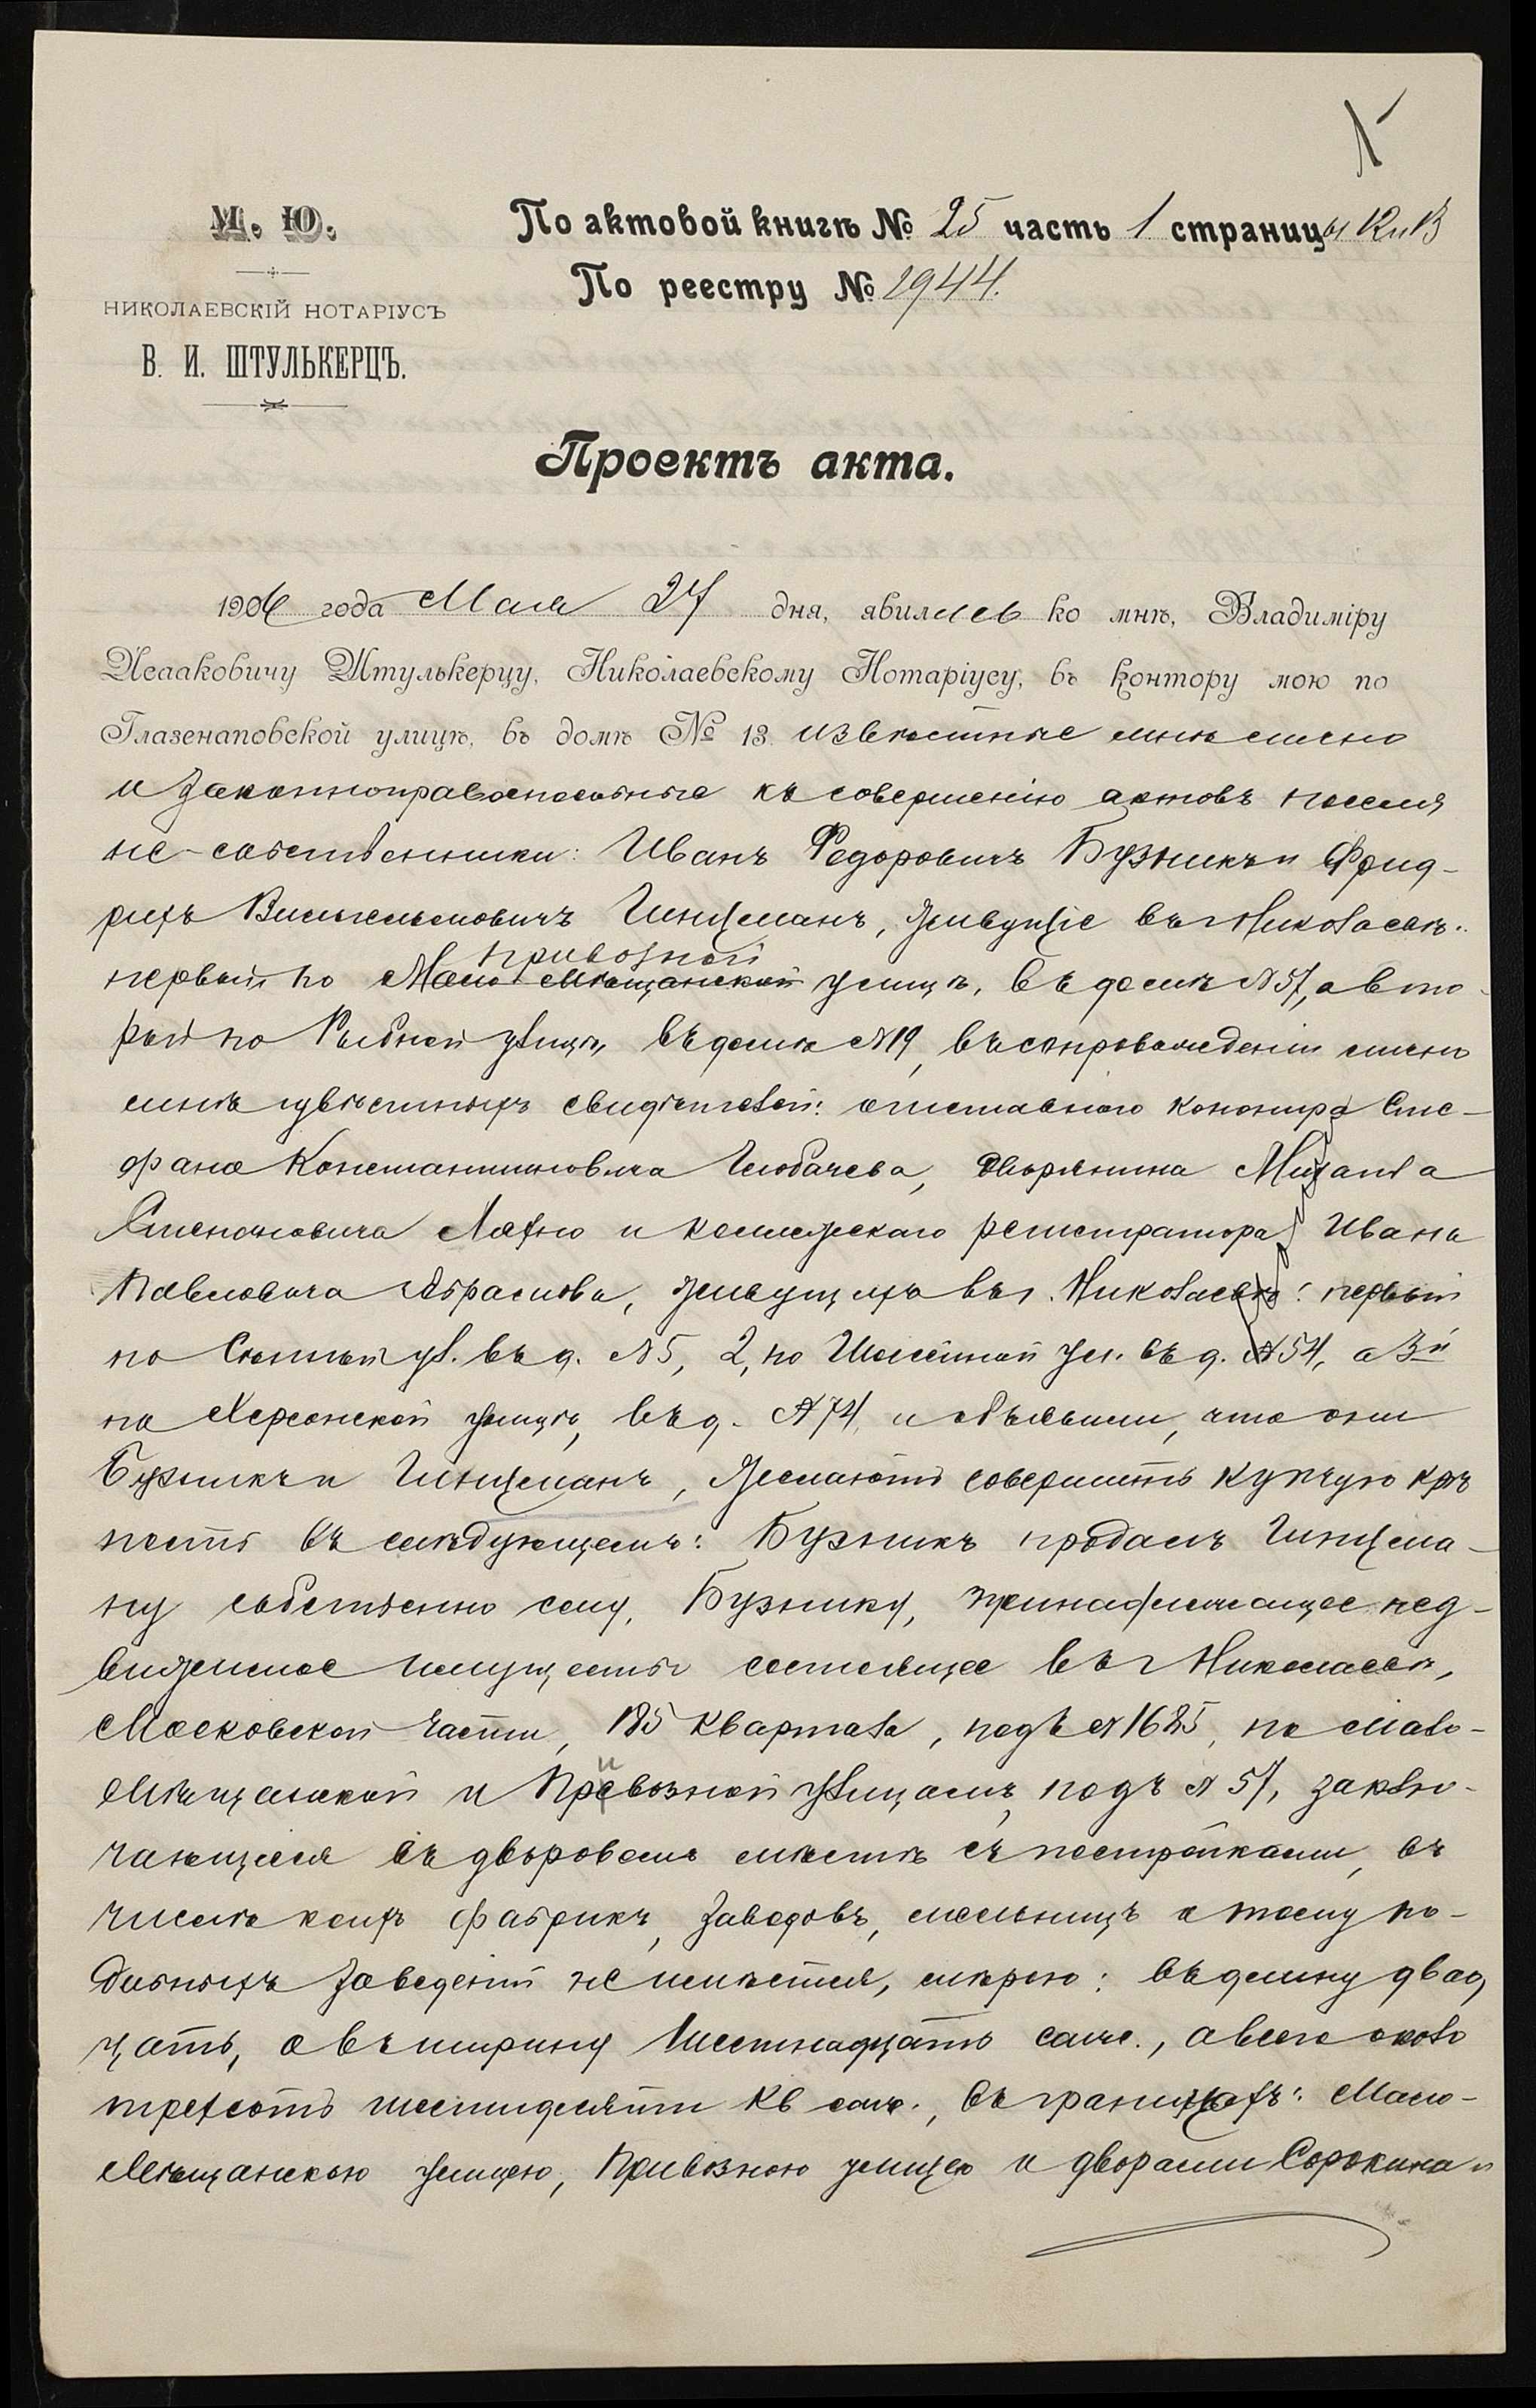 М. Ю.
НИКОЛАЕВСКІЙ НОТАРІУСЪ
В. И. ШТУЛЬКЕРЦЪ.
По актовой книгѣ № 25 часть 1 страницы
По реестру № 2944.
Проектъ акта.
1906 года Мая 27 дня, явились ко мнѣ, Владиміру
Исааковичу Штулькерцу, Николаевскому Нотаріусу, въ контору мою по
Глазенаповской улицѣ, въ домѣ № 13 извѣстные мнѣ лично
и законноправоспособные къ совершенію актовъ поселя
не-собственники: Иванъ Федоровичъ Бузникъ и Фрид-
рихъ Вильгельмовичъ Гинцманъ, живущіе въ г Николаевѣ:
Привозной
первый по Мало Мѣщанской улицѣ, въ домѣ № 57, а вто-
рый по Рыбной улицѣ, въ домѣ № 19, въ сопровожденіи лично
мнѣ извѣстныхъ свидѣтелей: отставного Сте-
фана Константиновича дворянина
и коллежскаго регистратора Ивана
Павловича Абрамова, живущихъ въ г. Николаевѣ: первый
по Сѣнной ул. въ д. № 5, 2, по ул. въ д. № 54, а 3й
по Херсонской улицѣ, въ д. № 74, и объявили, что они
Бузникъ и Гинцманъ, желаютъ совершить купчую крѣ
пость въ слѣдующемъ: Бузникъ продалъ Гинцма-
ну собственно ему, Бузнику, принадлежащее нед-
вижимое имущество состоящее въ г Николаевѣ,
Московской части, 185 квартала, подъ № 1685, по Мало-
Мѣщанской и Привозной улицамъ, подъ № 57, заклю-
чающееся въ дворовомъ мѣстѣ съ постройками, въ
числѣ коихъ фабрикъ, заводовъ, мельницъ и тому по-
добныхъ заведеній не имѣется, мѣрою: въ длину двад
цать, а въ ширину шестнадцать саж., а всего около
трехсотъ шестидесяти кв саж., въ границахъ: Мало-
Мѣщанскою улицею, Привозною улицею и дворами Сорокина и